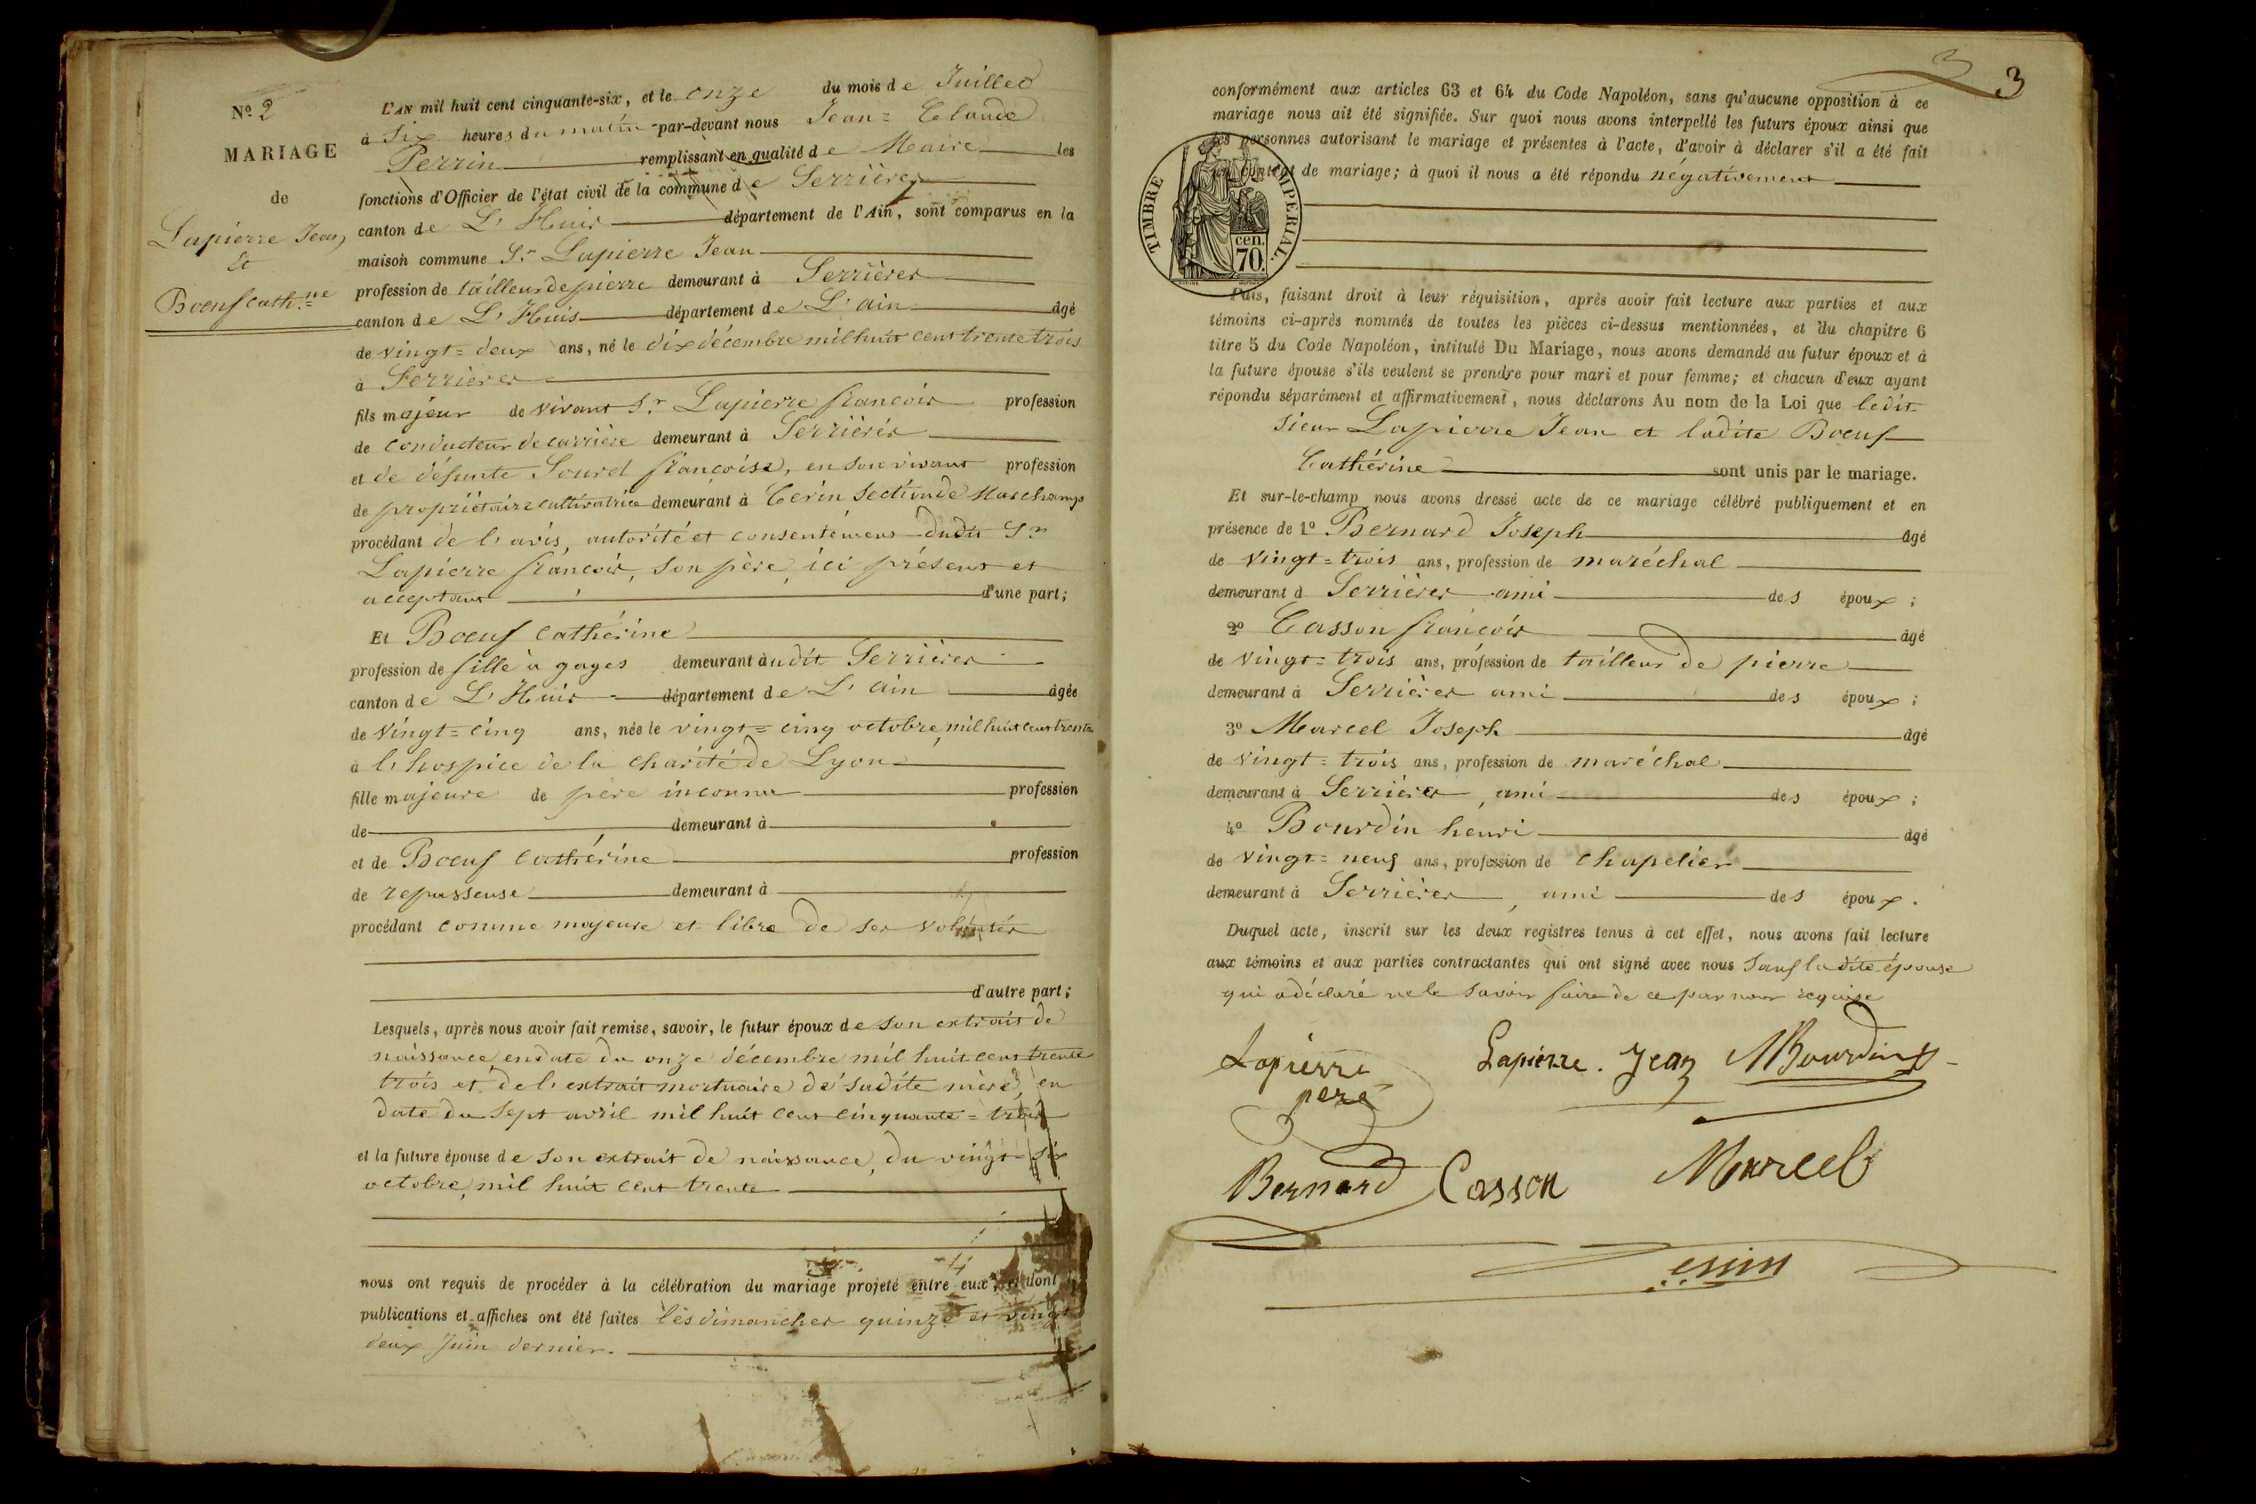 Nº 2
MARIAGE
de
Lapierre Jean
Et
Boeuf Cath.ne
L'AN mil huit cent cinquante-six, et le onze du mois de Juillet
à Six heures du matin par-devant nous Jean = Claude
Perrin remplissant en qualité de Maire les
fonctions d'Officier de l'état civil de la commune de Serrières
canton de L'Huis département de l'Ain, sont comparus en la
maison commune Sr Lapierre Jean
profession de tailleur de pierre demeurant à Serrières
canton de L'Huis département de L'ain âgé
de vingt = deux ans, né le dix décembre mil huit cent trente trois
à Serrières
fils majeur de vivant Sr Lapierre françois profession
de conducteur de carrière demeurant à Serrières
et de défunte Sourd françoise, en son vivant profession
de propriétaire cultivatrice demeurant à Cerin Section de Marchamp
procédant de l'avis, autorité et consentement dudit Sr
Lapierre françois, son père, ici présent et
acceptant d'une part;
Et Boeuf Cathérine
profession de fille à gages demeurant àudit Serrières
canton de L'Huis département de L'ain âgée
de vingt = cinq ans, née le vingt = cinq octobre, mil huit cent trente
à l'hospice de la charité de Lyon
fille majeure de père inconnu profession
de demeurant à
et de Boeuf Cathérine profession
de repasseuse demeurant à
procédant comme majeure et libre de ses volontés
d'autre part;
Lesquels, après nous avoir fait remise, savoir, le futur époux de son extrait de
naissance en date du onze décembre mil huit cent trente
trois et de l'extrait mortuaire de sadite mère, en
date du Sept avril mil huit cent cinquante = trois
et la future épouse de son extrait de naissance, du vingt = six
octobre, mil huit cent trente
nous ont requis de procéder à la célébration du mariage projeté entre eux, et dont les
publications et affiches ont été faites les dimanches quinze et vingt
deux Juin dernier.
3
conformément aux articles 63 et 64 du Code Napoléon, sans qu'aucune opposition à ce
mariage nous ait été signifiée. Sur quoi nous avons interpellé les futurs époux ainsi que
les personnes autorisant le mariage et présentes à l'acte, d'avoir à déclarer s'il a été fait
contrat de mariage; à quoi il nous a été répondu négativement
TIMBRE IMPERIAL.
cen.
70.
Puis, faisant droit à leur réquisition, après avoir fait lecture aux parties et aux
témoins ci-après nommés de toutes les pièces ci-dessus mentionnées, et du chapitre 6
titre 5 du Code Napoléon, intitulé Du Mariage, nous avons demandé au futur époux et à
la future épouse s'ils veulent se prendre pour mari et pour femme; et chacun d'eux ayant
répondu séparément et affirmativement, nous déclarons Au nom de la Loi que ledit
sieur Lapierre Jean et ladite Boeuf
Cathérine sont unis par le mariage.
Et sur-le-champ nous avons dressé acte de ce mariage célébré publiquement et en
présence de 1º Bernard Joseph âgé
de vingt = trois ans, profession de maréchal
demeurant à Serrières ami des époux;
2º Casson françois âgé
de vingt = trois ans, profession de tailleur de pierre
demeurant à Serrières ami des époux;
3º Marcel Joseph âgé
de vingt = trois ans, profession de maréchal
demeurant à Serrières, ami des époux;
4º Bourdin henri âgé
de vingt = neuf ans, profession de chapelier
demeurant à Serrières, ami des époux.
Duquel acte, inscrit sur les deux registres tenus à cet effet, nous avons fait lecture
aux témoins et aux parties contractantes qui ont signé avec nous Sauf ladite épouse
qui a déclaré ne le savoir faire de ce par nous requise
Lapierre Lapierre. Jean Bourdin
père
Bernard Casson Marcel